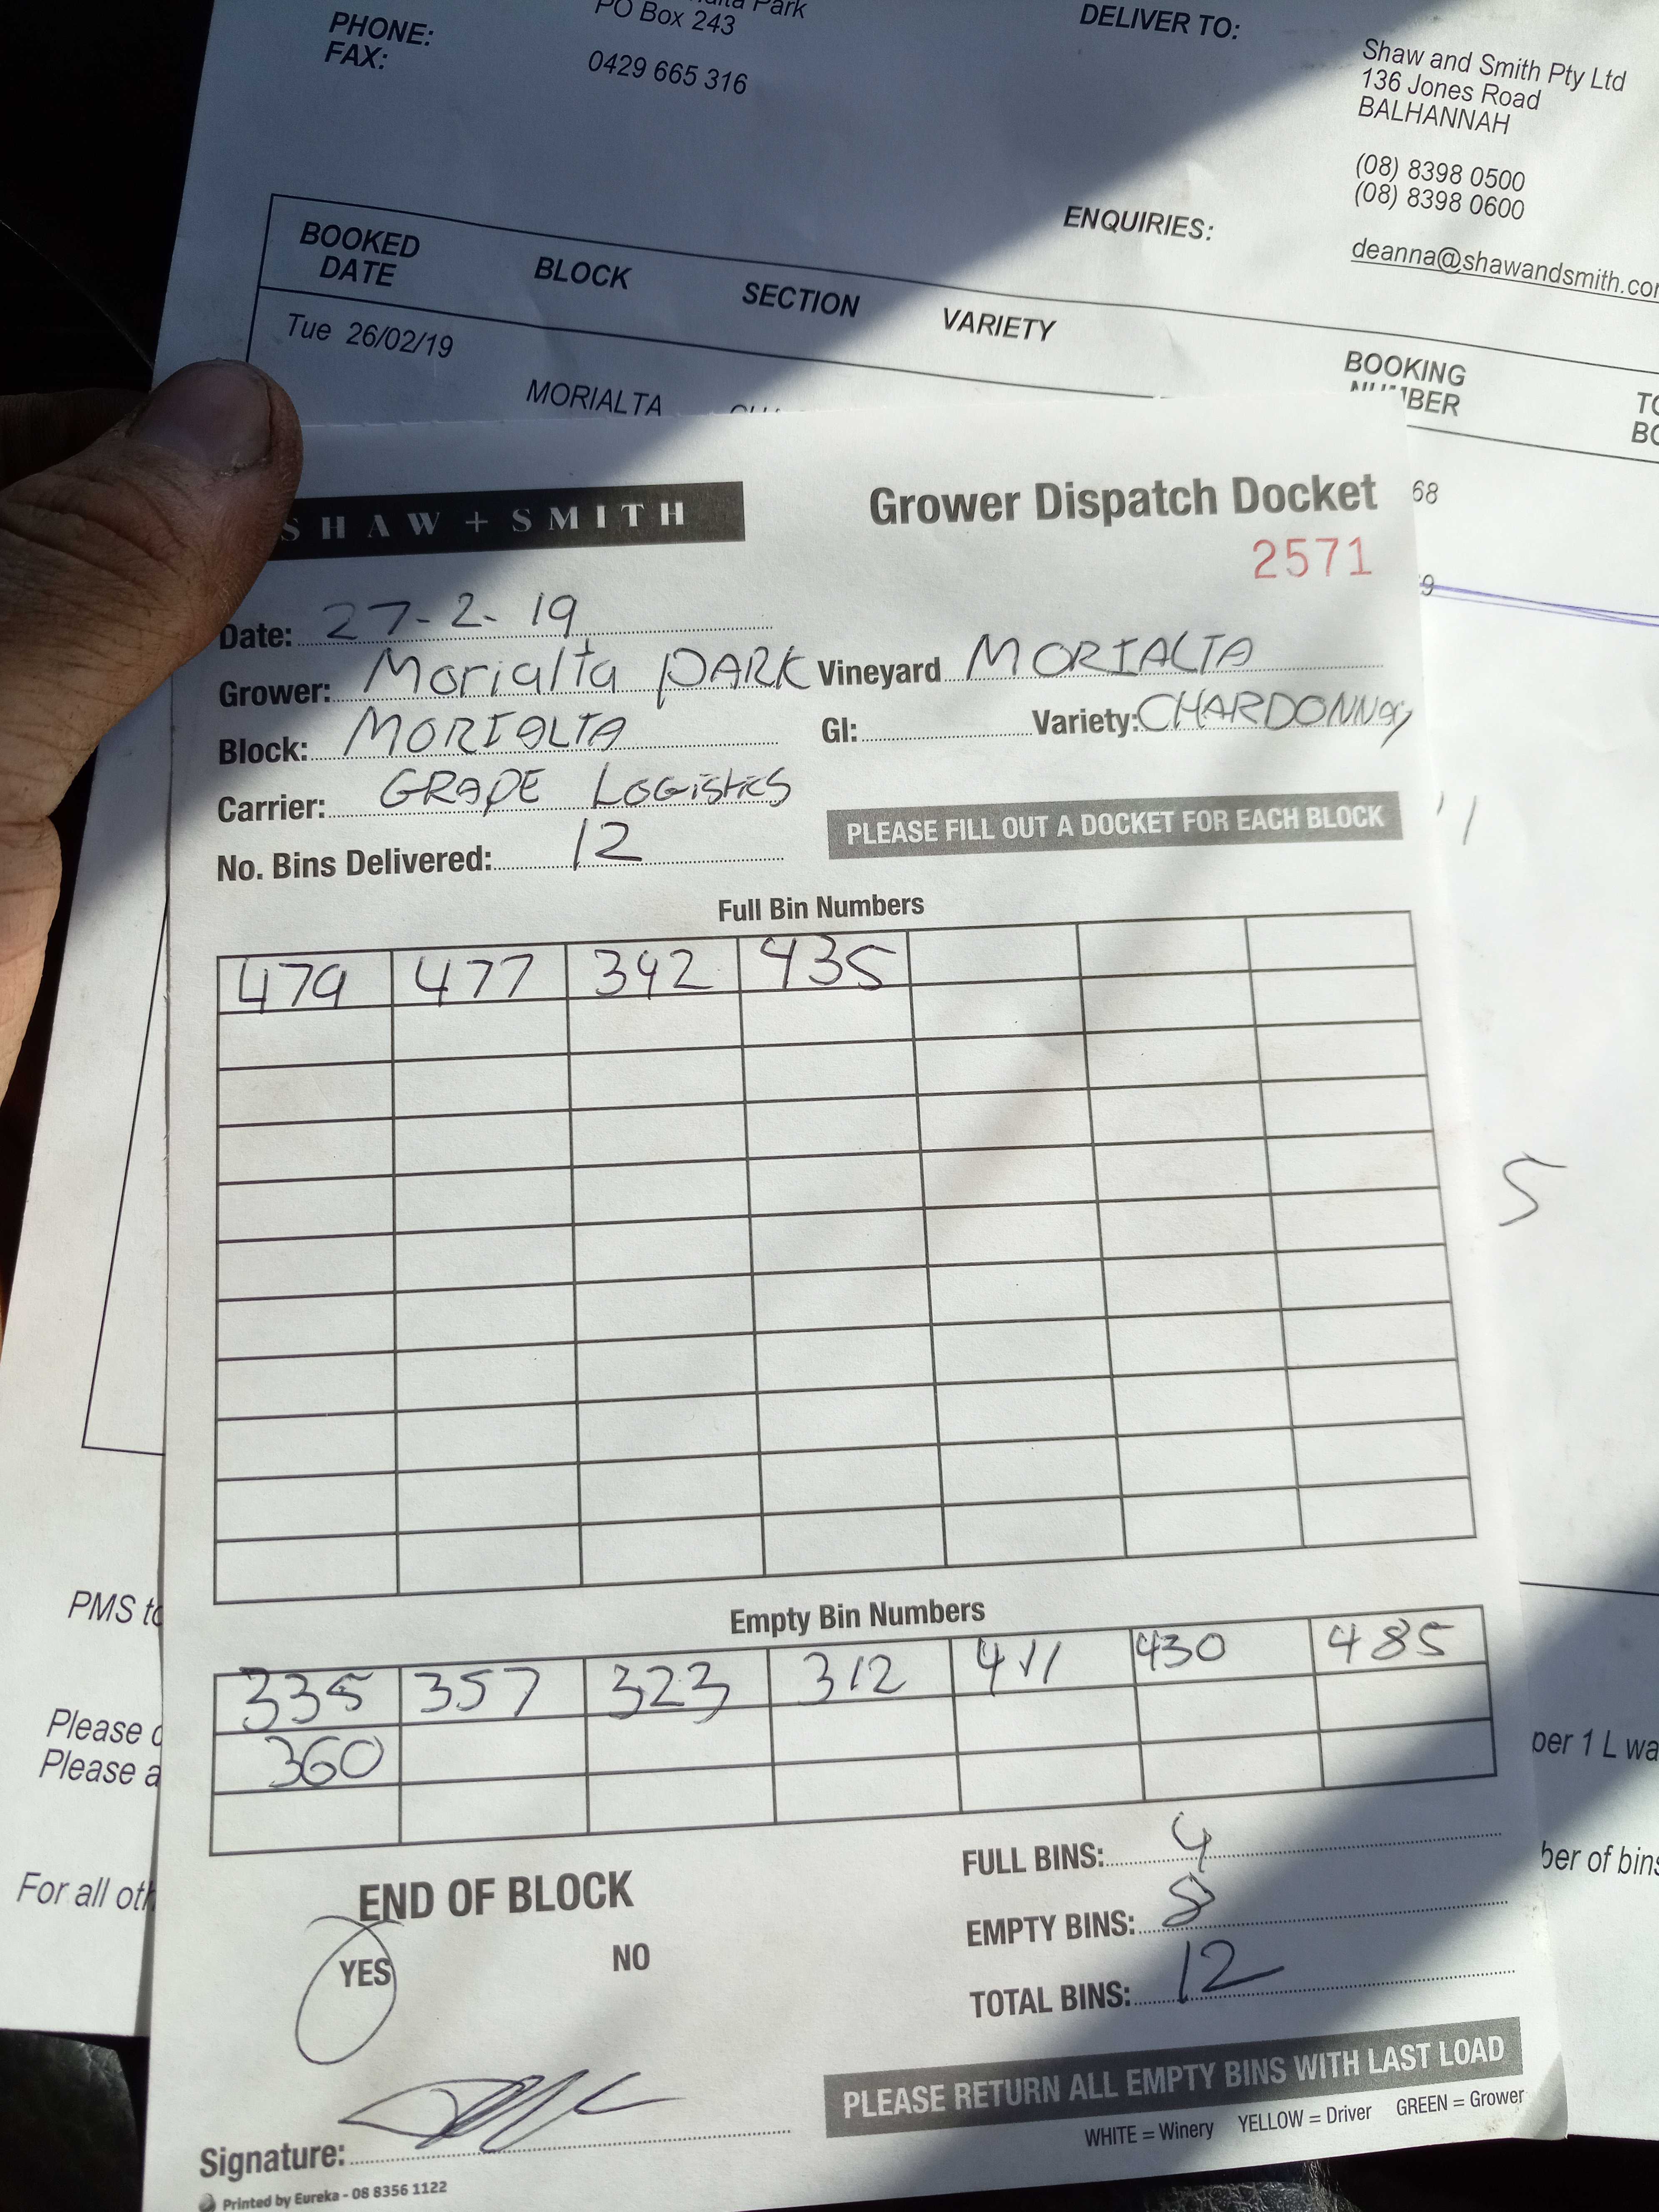 Park
PO Box 243
PHONE:
FAX:
0429 665 316
DELIVER TO:
Shaw and Smith Pty Ltd
136 Jones Road
BALHANNAH
(08) 8398 0500
(08) 8398 0600
ENQUIRIES:
deanna@shawandsmith.co
BOOKED DATE BLOCK SECTION VARIETY BOOKING NUMBER
Tue 26/02/19
MORIALTA
68
9
SHAW + SMITH
Grower Dispatch Docket
2571
Date: 27-2-19
Grower: Morialta PARK Vineyard MORIALTA
Block: MORIALTA GI: Variety: CHARDONNAY
Carrier: GRAPE LOGistics
No. Bins Delivered: 12
PLEASE FILL OUT A DOCKET FOR EACH BLOCK
Full Bin Numbers
479 477 342 435
5
Empty Bin Numbers
335 357 323 312 411 430 485
360
FULL BINS: 4
EMPTY BINS: 8
TOTAL BINS: 12
END OF BLOCK
YES NO
PLEASE RETURN ALL EMPTY BINS WITH LAST LOAD
WHITE = Winery YELLOW = Driver GREEN = Grower
Signature:
Printed by Eureka - 08 8356 1122
PMS to
Please
Please a
For all oth
per 1 L wa
ber of bins